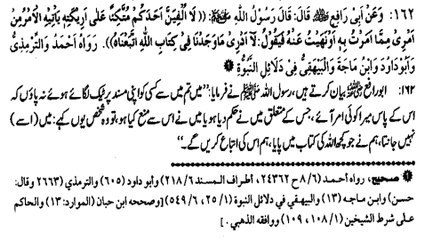 ١٦٢: وَعَنْ أَبِي رَافِعٍ ﷺ قَالَ: قَالَ رَسُولُ اللَّهِ ﷺ: ((لَا أُلْفِيَنَّ أَحَدَكُمْ مُتَّكِئًا عَلَى أَرِيكَتِهِ يَأْتِيهِ الْأَمْرُ مِنْ
أَمْرِي مِمَّا أَمَرْتُ بِهِ أَوْ نَهَيْتُ عَنْهُ فَيَقُولُ: لَا أَدْرِي مَا وَجَدْنَا فِي كِتَابِ اللَّهِ اتَّبَعْنَاهُ)). رَوَاهُ أَحْمَدُ وَالتِّرْمِذِيُّ
وَأَبُو دَاوُدَ وَابْنُ مَاجَةَ وَالْبَيْهَقِيُّ فِي دَلَائِلِ النُّبُوَّةِ
١٦٢: ابو رافع بیان کرتے ہیں، رسول اللہ ﷺ نے فرمایا: ”میں تم میں سے کسی کو اپنی مسند پر ٹیک لگائے ہوئے نہ پاؤں کہ
اس کے پاس میرا کوئی امر آئے، جس کے متعلق میں نے حکم دیا ہو یا میں نے اس سے منع کیا ہو، تو وہ شخص یوں کہے: میں (اسے)
نہیں جانتا، ہم نے جو کچھ اللہ کی کتاب میں پایا، ہم اس کی اتباع کریں گے۔“
صحيح، رواه أحمد (٨/٦ ح ٢٤٣٦٢، أطراف المسند ٢١٨/٦) وأبو داود (٤٦٠٥) والترمذي (٢٦٦٣ وقال:
حسن) وابن ماجه (١٣) والبيهقي في دلائل النبوة (٢٥/١، ٥٤٩/٦) [وصححه ابن حبان (الموارد: ١٣) والحاكم
على شرط الشيخين (١٠٨/١، ١٠٩) ووافقه الذهبي.]